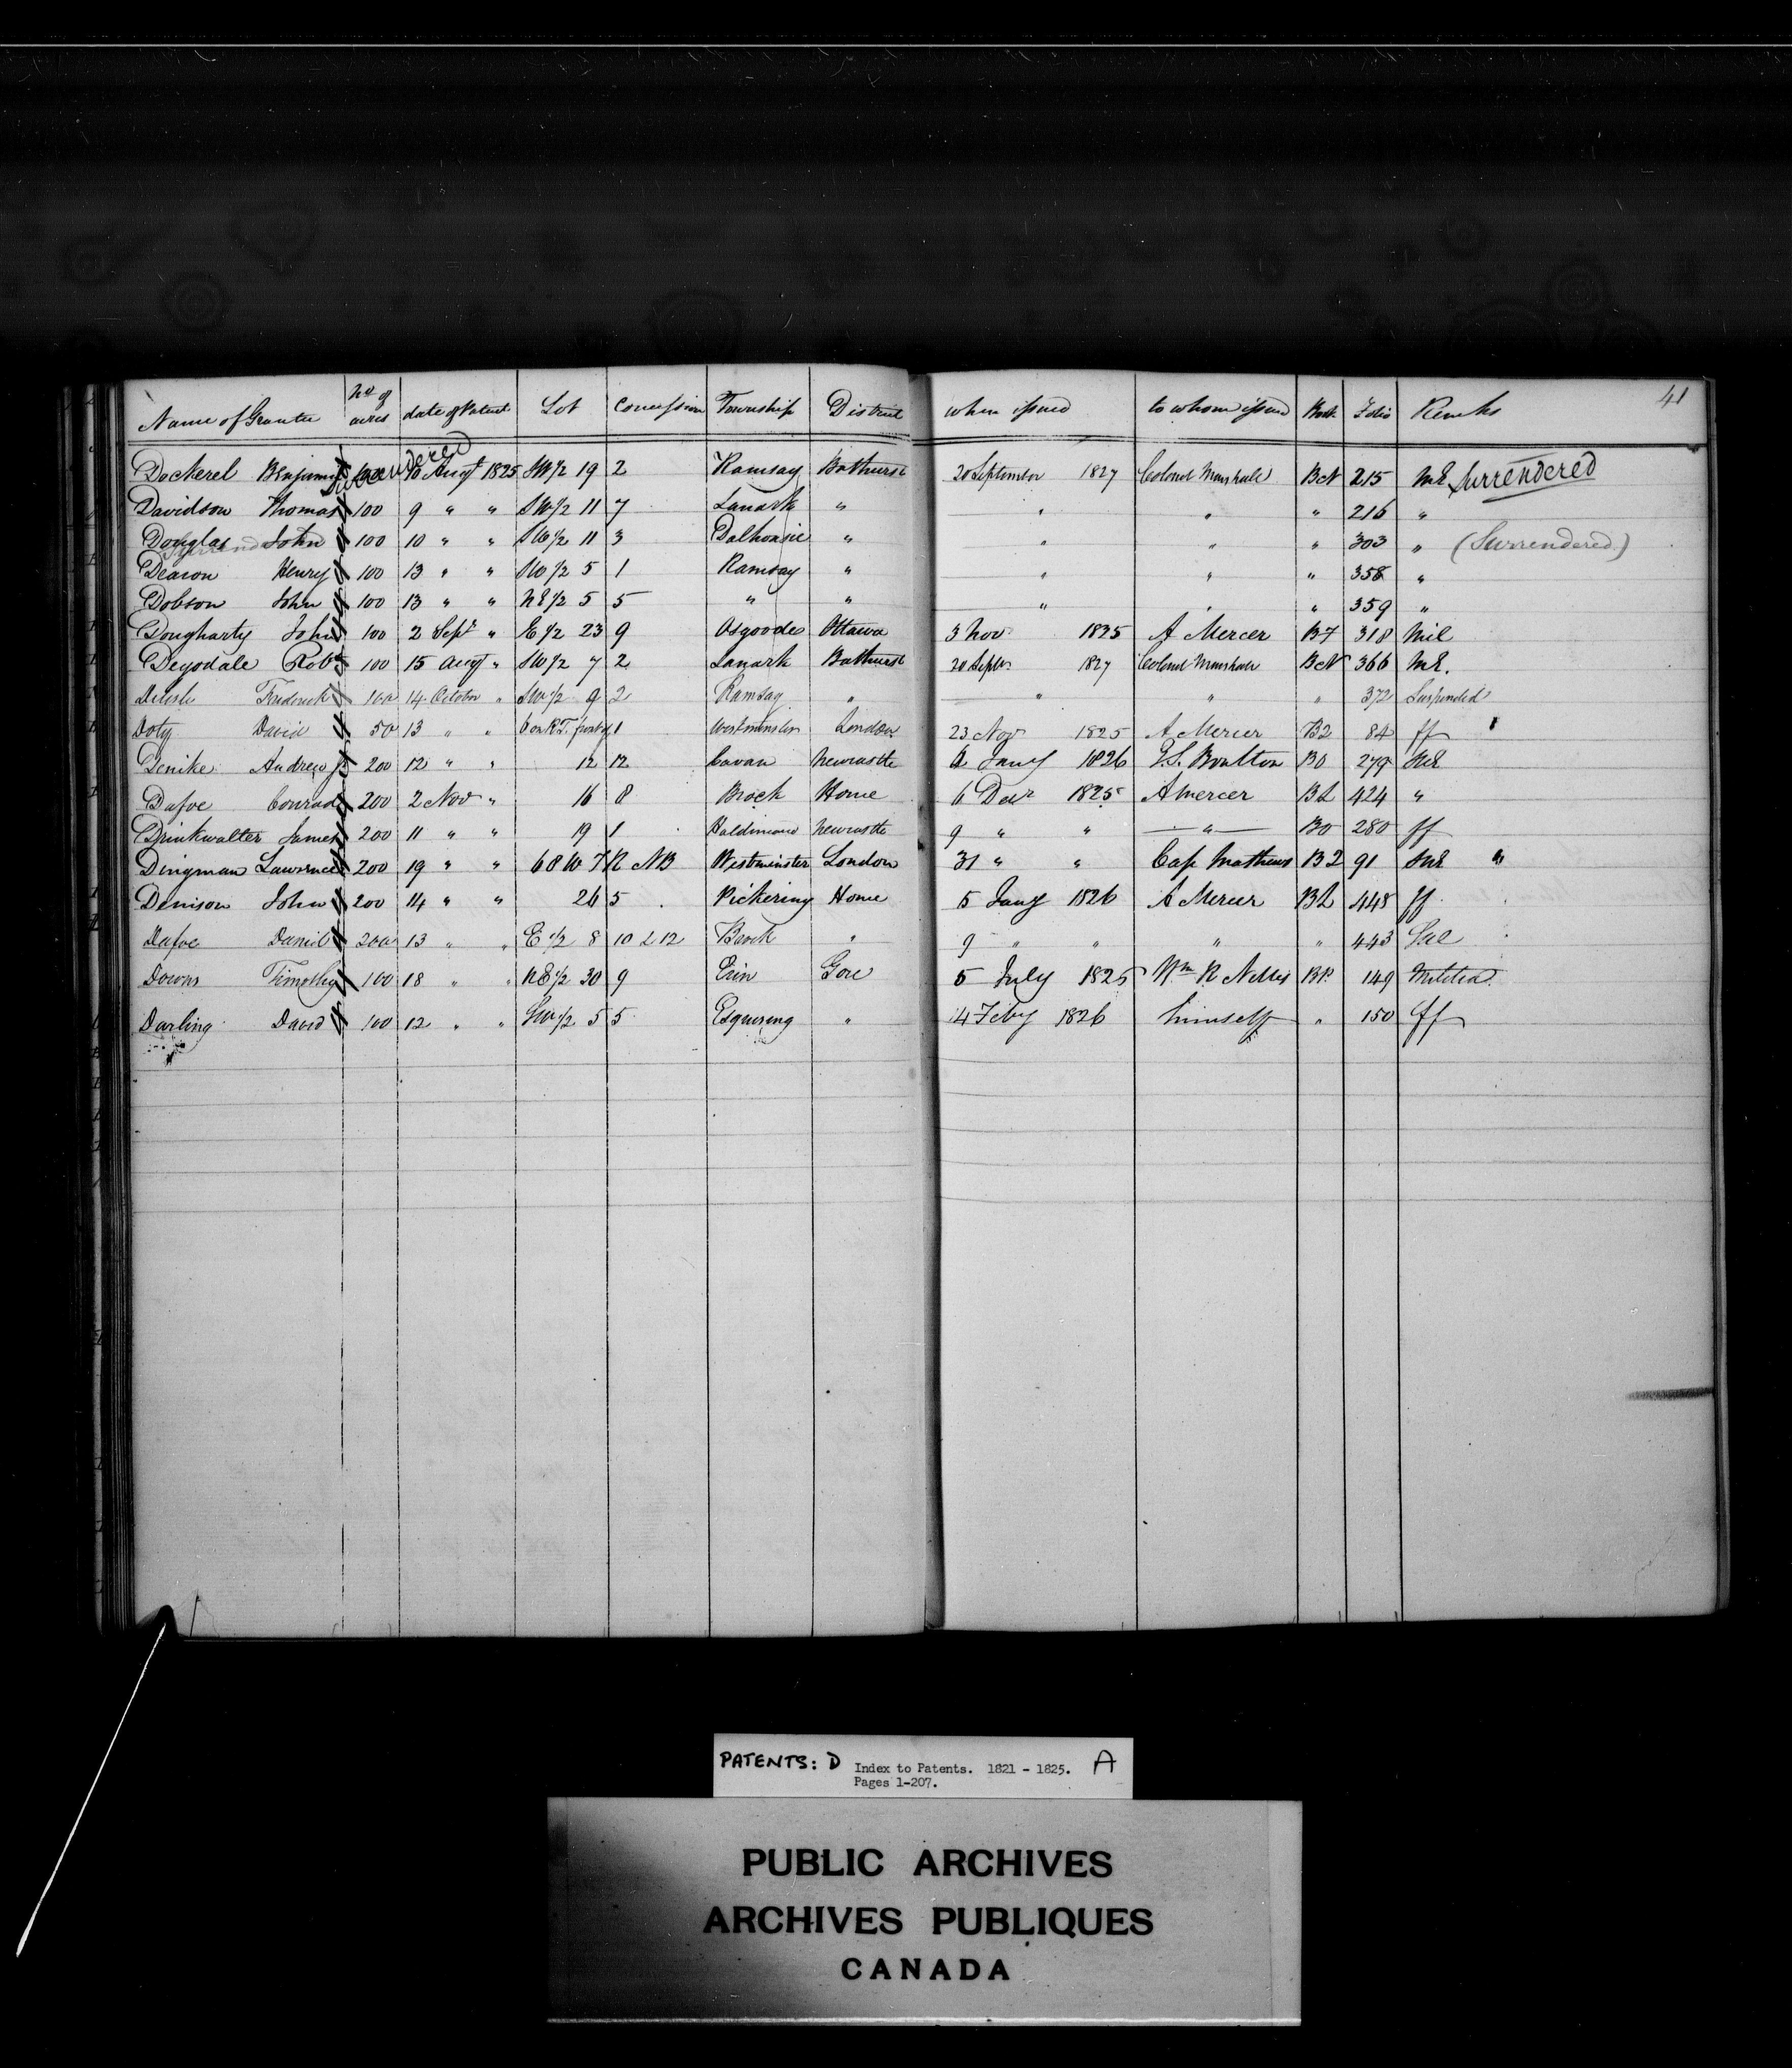 41
Name of Grantee No of acres date of Patent Lot Concession Township District when issued to whom issued Book Folio Remks
Surrendered
Dockerel Benjamin 100 10 Augt 1825 SW 1/2 19 2 Ramsay Bathurst 20 September 1827 Colonel Marshall BN 215 ME Surrendered
Davidson Thomas 100 9 " " SW 1/2 11 7 Lanark " " " " 216 "
Douglas John 100 10 " " SW 1/2 11 3 Dalhousie " " " " 303 " (Surrendered)
Deacon Henry 100 13 " " SW 1/2 5 1 Ramsay " " " " 358 "
Dobson John 100 13 " " NE 1/2 5 5 " " " " " 359 "
Dougharty John 100 2 Sept " E 1/2 23 9 Osgoode Ottawa 3 Nov 1825 A Mercer B7 318 Mil
Deyodale Robt 100 15 Augt " SW 1/2 7 2 Lanark Bathurst 20 Septr 1827 Colonel Marshall BN 366 ME.
Delisle Frederick 100 14 October " SW 1/2 9 2 Ramsay " " " " 372 Suspended
Doty David 50 13 " " 1 Westminster London 23 Nov 1825 A Mercer B2 84 ff "
Denike Andrew 200 12 " " 12 12 Cavan Newcastle Jany 1826 Boulton B0 279 ME
Dafoe Conrad 200 2 Nov " 16 8 Brock Home 6 Decr 1825 A Mercer BL 424 "
Drinkwalter James 200 11 " " 19 1 Haldimand Newcastle 9 " " " B0 280 ff
Dingman Lawrence 200 19 " " 68 W T R NB Westminster London 31 " " Cap Mathews B2 91 ME "
Denison John 200 14 " " 26 5 Pickering Home 5 Jany 1826 A Mercer BL 448 ff
Dafoe Daniel 200 13 " " E 1/2 8 10 & 12 Brock " 9 " " " " 443
Downs Timothy 100 18 " " NE 1/2 30 9 Erin Gore 5 July 1825 Wm R Nelles BP. 149 Militia
Darling David 100 12 " " SW 1/2 5 5 Esquesing " 14 Feby 1826 himself " 150 ff
PATENTS: D Index to Patents. 1821 - 1825. A
Pages 1-207.
PUBLIC ARCHIVES
ARCHIVES PUBLIQUES
CANADA